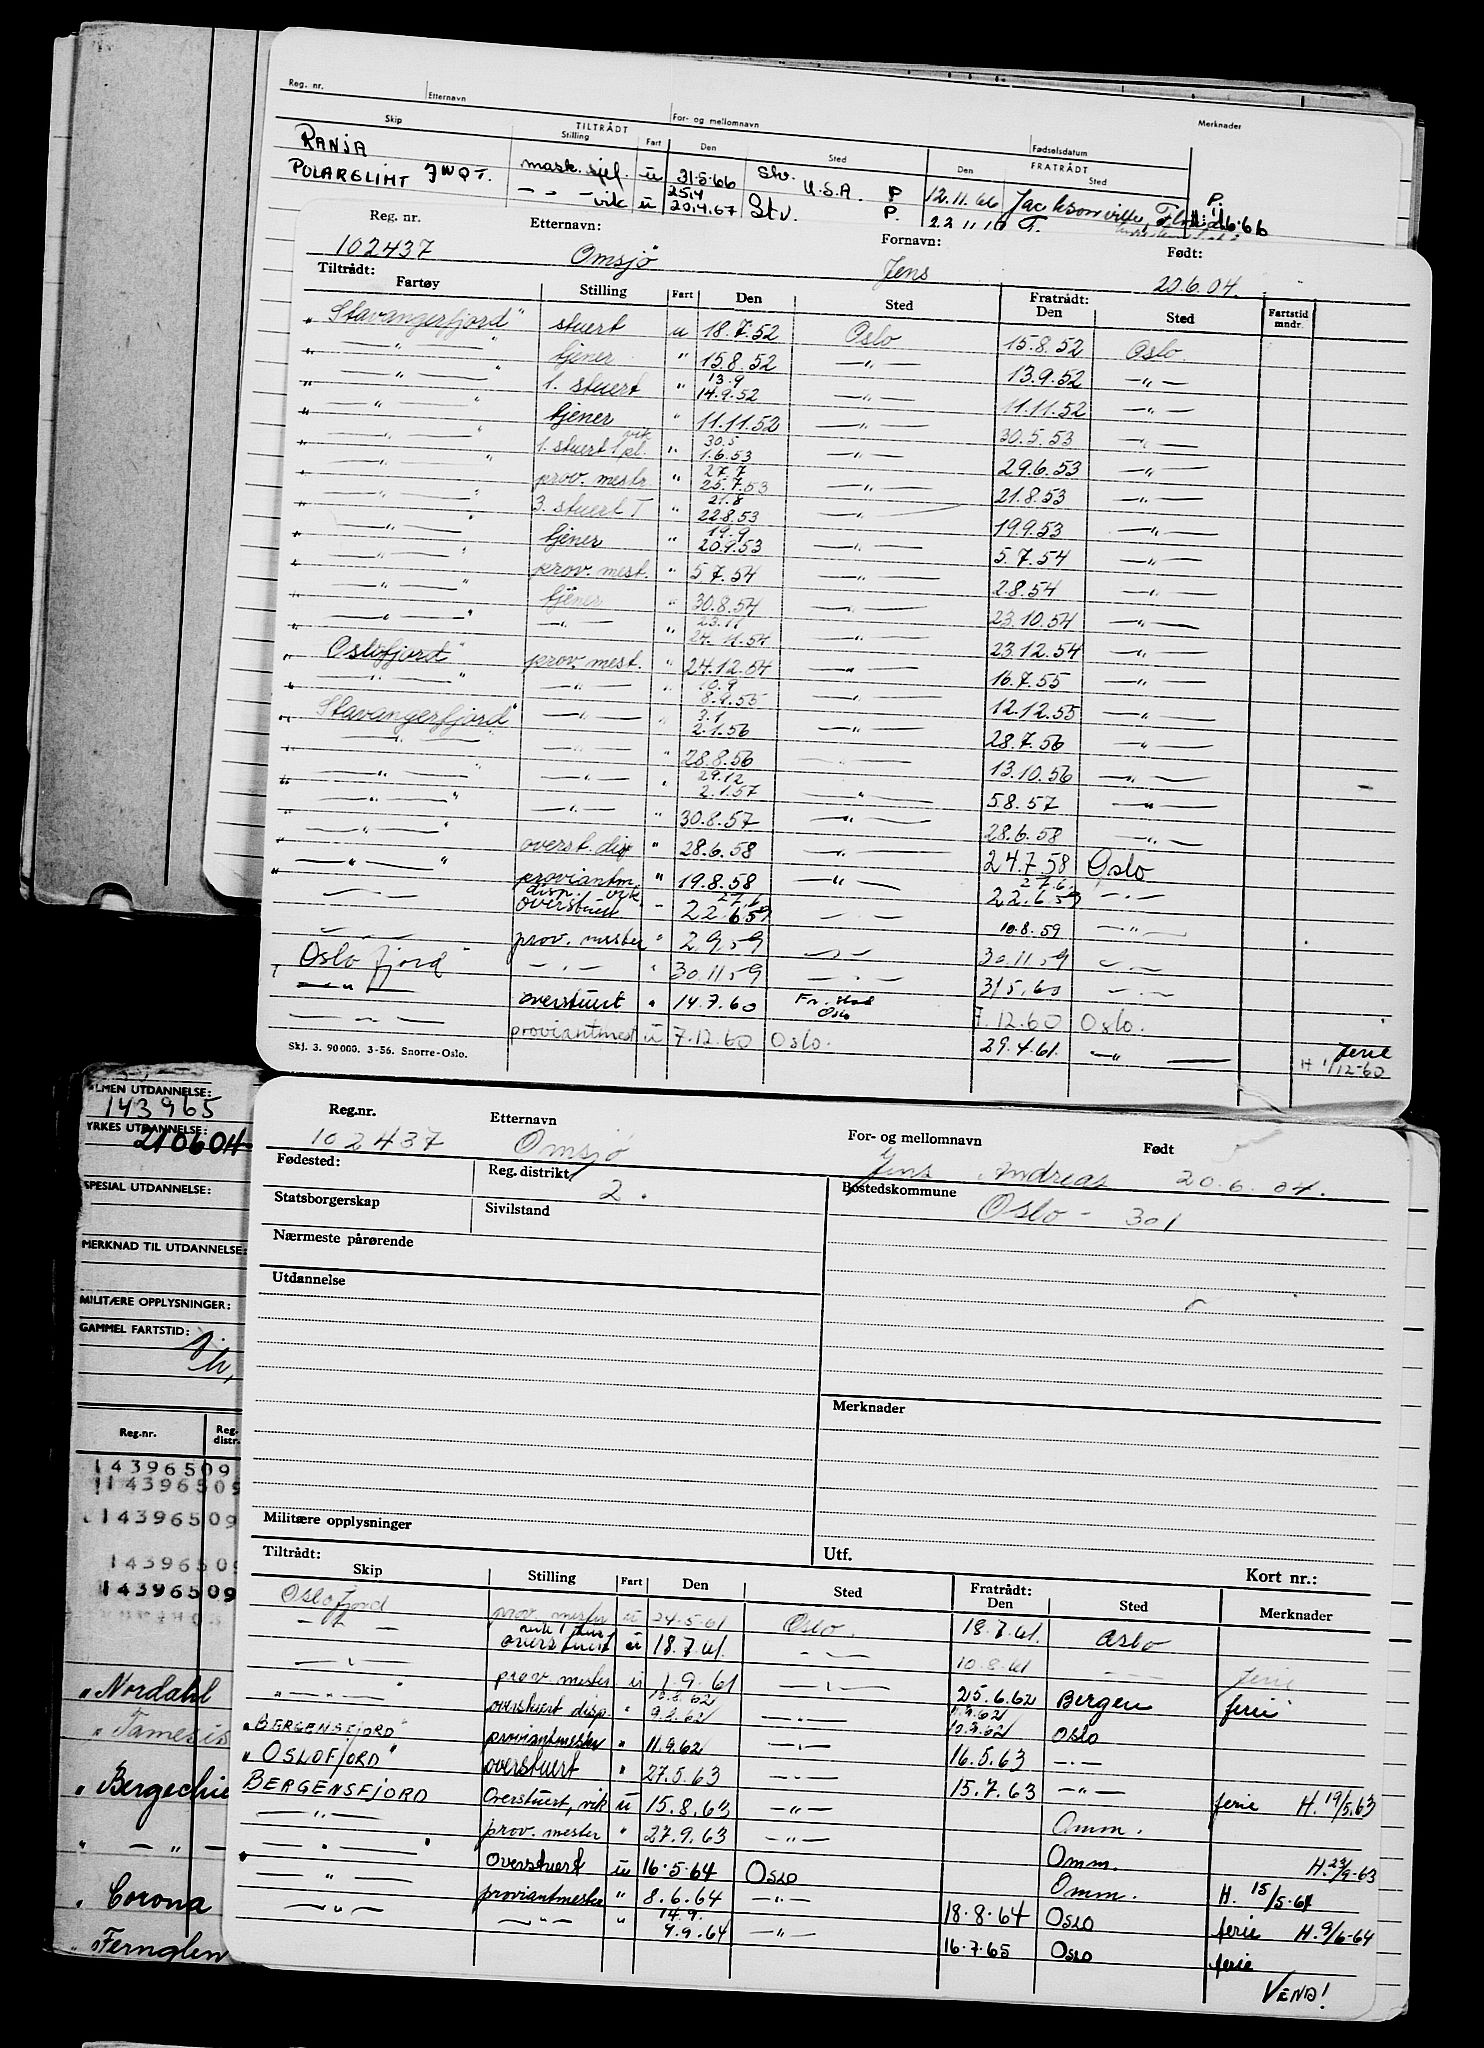 Reg. nr. Etternavn For- og mellomnavn Merknader
Skip TILTRÅDT Stilling Fart Den Sted Fødselsdatum FRATRÅDT Den Sted
RANJA mask. sjef. u 31.5.66 Stv. U.S.A. P 12.11.66 Jacksonville,
POLARGLIMT JWQT. — " — vik u 25.4 20.4.67 Stv. P.
Reg. nr. Etternavn: Fornavn: Født:
102437 Omsjö Jens 20.6.04.
Tiltrådt: Fratrådt:
Fartøy Stilling Fart Den Sted Den Sted Fartstid mndr.
" Stavangerfjord" stuert u 18.7.52 Oslo 15.8.52 Oslo
" — " — " tjener " 15.8.52 — " — 13.9.52 — " —
" — " — " 1. stuert " 13.9 14.9.52 — " — 11.11.52 — " —
" — " — " tjener " 11.11.52 — " — 30.5.53 — " —
" — " — " 1. stuert 1 pl. vik " 30.5 1.6.53 — " — 29.6.53 — " —
" — " — " prov. mestr " 27.7 25.7.53 — " — 21.8.53 — " —
" — " — " 3. stuert T " 21.8 22.8.53 — " — 19.9.53 — " —
" — " — " tjener " 19.9 20.9.53 — " — 5.7.54 — " —
" — " — " prov. mest. " 5.7.54 — " — 2.8.54 — " —
" — " — " tjener " 30.8.54 — " — 23.10.54 — " —
" — " — " — " — " 23.11 24.11.54 — " — 23.12.54 — " —
" Oslofjord" prov. mest. " 24.12.54 — " — 16.7.55 — " —
" — " — " — " — " 10.9 8.9.55 — " — 12.12.55 — " —
" Stavangerfjord" — " — " 3.1 2.1.56 — " — 28.7.56 — " —
" — " — — " — " 28.8.56 13.10.56 — " —
" — " — " — " — " 29.12 2.1.57 — " — 5.8.57 — " —
" — " — " — " — " 30.8.57 — " — 28.6.58 — " —
" — " — " overst. disp " 28.6.58 — " — 24.7.58 Oslo
" — " — " proviantm " 19.8.58 — " — 27.6. 22.6.59 — " —
— " — disp. vik overstuert " 27.6 22.6.59 — " — 10.8.59 — " —
— " — prov. mester " 2.9.59 — " — 30.11.59 — " —
" Oslofjord — " — " 30.11.59 — " — 31.5.60 — " —
— " — overstuert " 14.7.60 Oslo 7.12.60 Oslo.
— " — proviantmest u 7.12.60 Oslo. 29.4.61. — " — ferie H 1/12-60
Skj. 3. 90000. 3-56. Snorre-Oslo.
ALMEN UTDANNELSE:
143965
YRKES UTDANNELSE:
210604
SPESIAL UTDANNELSE:
MERKNAD TIL UTDANNELSE:
MILITÆRE OPPLYSNINGER:
GAMMEL FARTSTID:
Reg.nr. Reg. distr.
14396509
14396509
14396509
14396509
14396509
" Nordahl
" Tamesis
" Bergechie
" — " —
" Corona
" Fernglen
Reg.nr. Etternavn For- og mellomnavn Født
102437 Omsjö Jens Andreas 20.6.04.
Fødested: Reg. distrikt 2. Bostedskommune Oslo - 301
Statsborgerskap Sivilstand
Nærmeste pårørende
Utdannelse
Merknader
Militære opplysninger Utf. Kort nr.:
Tiltrådt: Fratrådt:
Skip Stilling Fart Den Sted Den Sted Merknader
Oslofjord prov. mester u 24.5.61 Oslo. 18.7.61. Oslo
— " — overstuert u 18.7.61. — " — 10.8.61 — " — ferie
— " — prov. mester u 1.9.61 — " — 25.6.62 Bergen ferie
" — " — " overstuert disp. " 9.8.62 — " — 10.9.62 Oslo
" BERGENSFJORD" proviantmester " 11.9.62 — " — 16.5.63 — " —
" OSLOFJORD" overstuert " 27.5.63 — " — 15.7.63 — " — ferie H. 19/5.63
BERGENSFJORD Overstuert, vik u 15.8.63 — " — Omm.
— " — prov. mester " 27.9.63 — " — Omm. H. 23/9-63
" — " — " Overstuert u 16.5.64 Oslo Omm. H. 15/5-64
— " — proviantmester " 8.6.64 — " — 18.8.64 Oslo ferie H. 9/6-64
— " — — " — " 14.9. 9.9.64 — " — 16.7.65 Oslo ferie
VEND!